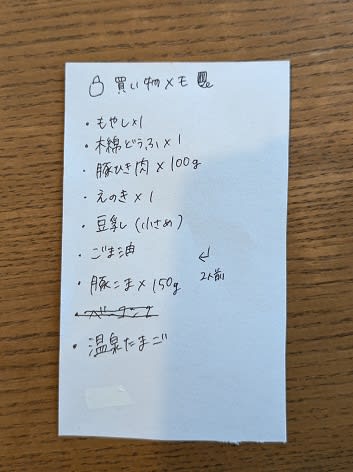 買い物メモ
・もやし×1
・木綿どうふ×1
・豚ひき肉×100g
・えのき×1
・豆乳(小さめ)
・ごま油
・豚こま×150g
2人前
・ベーコン
・温泉たまご